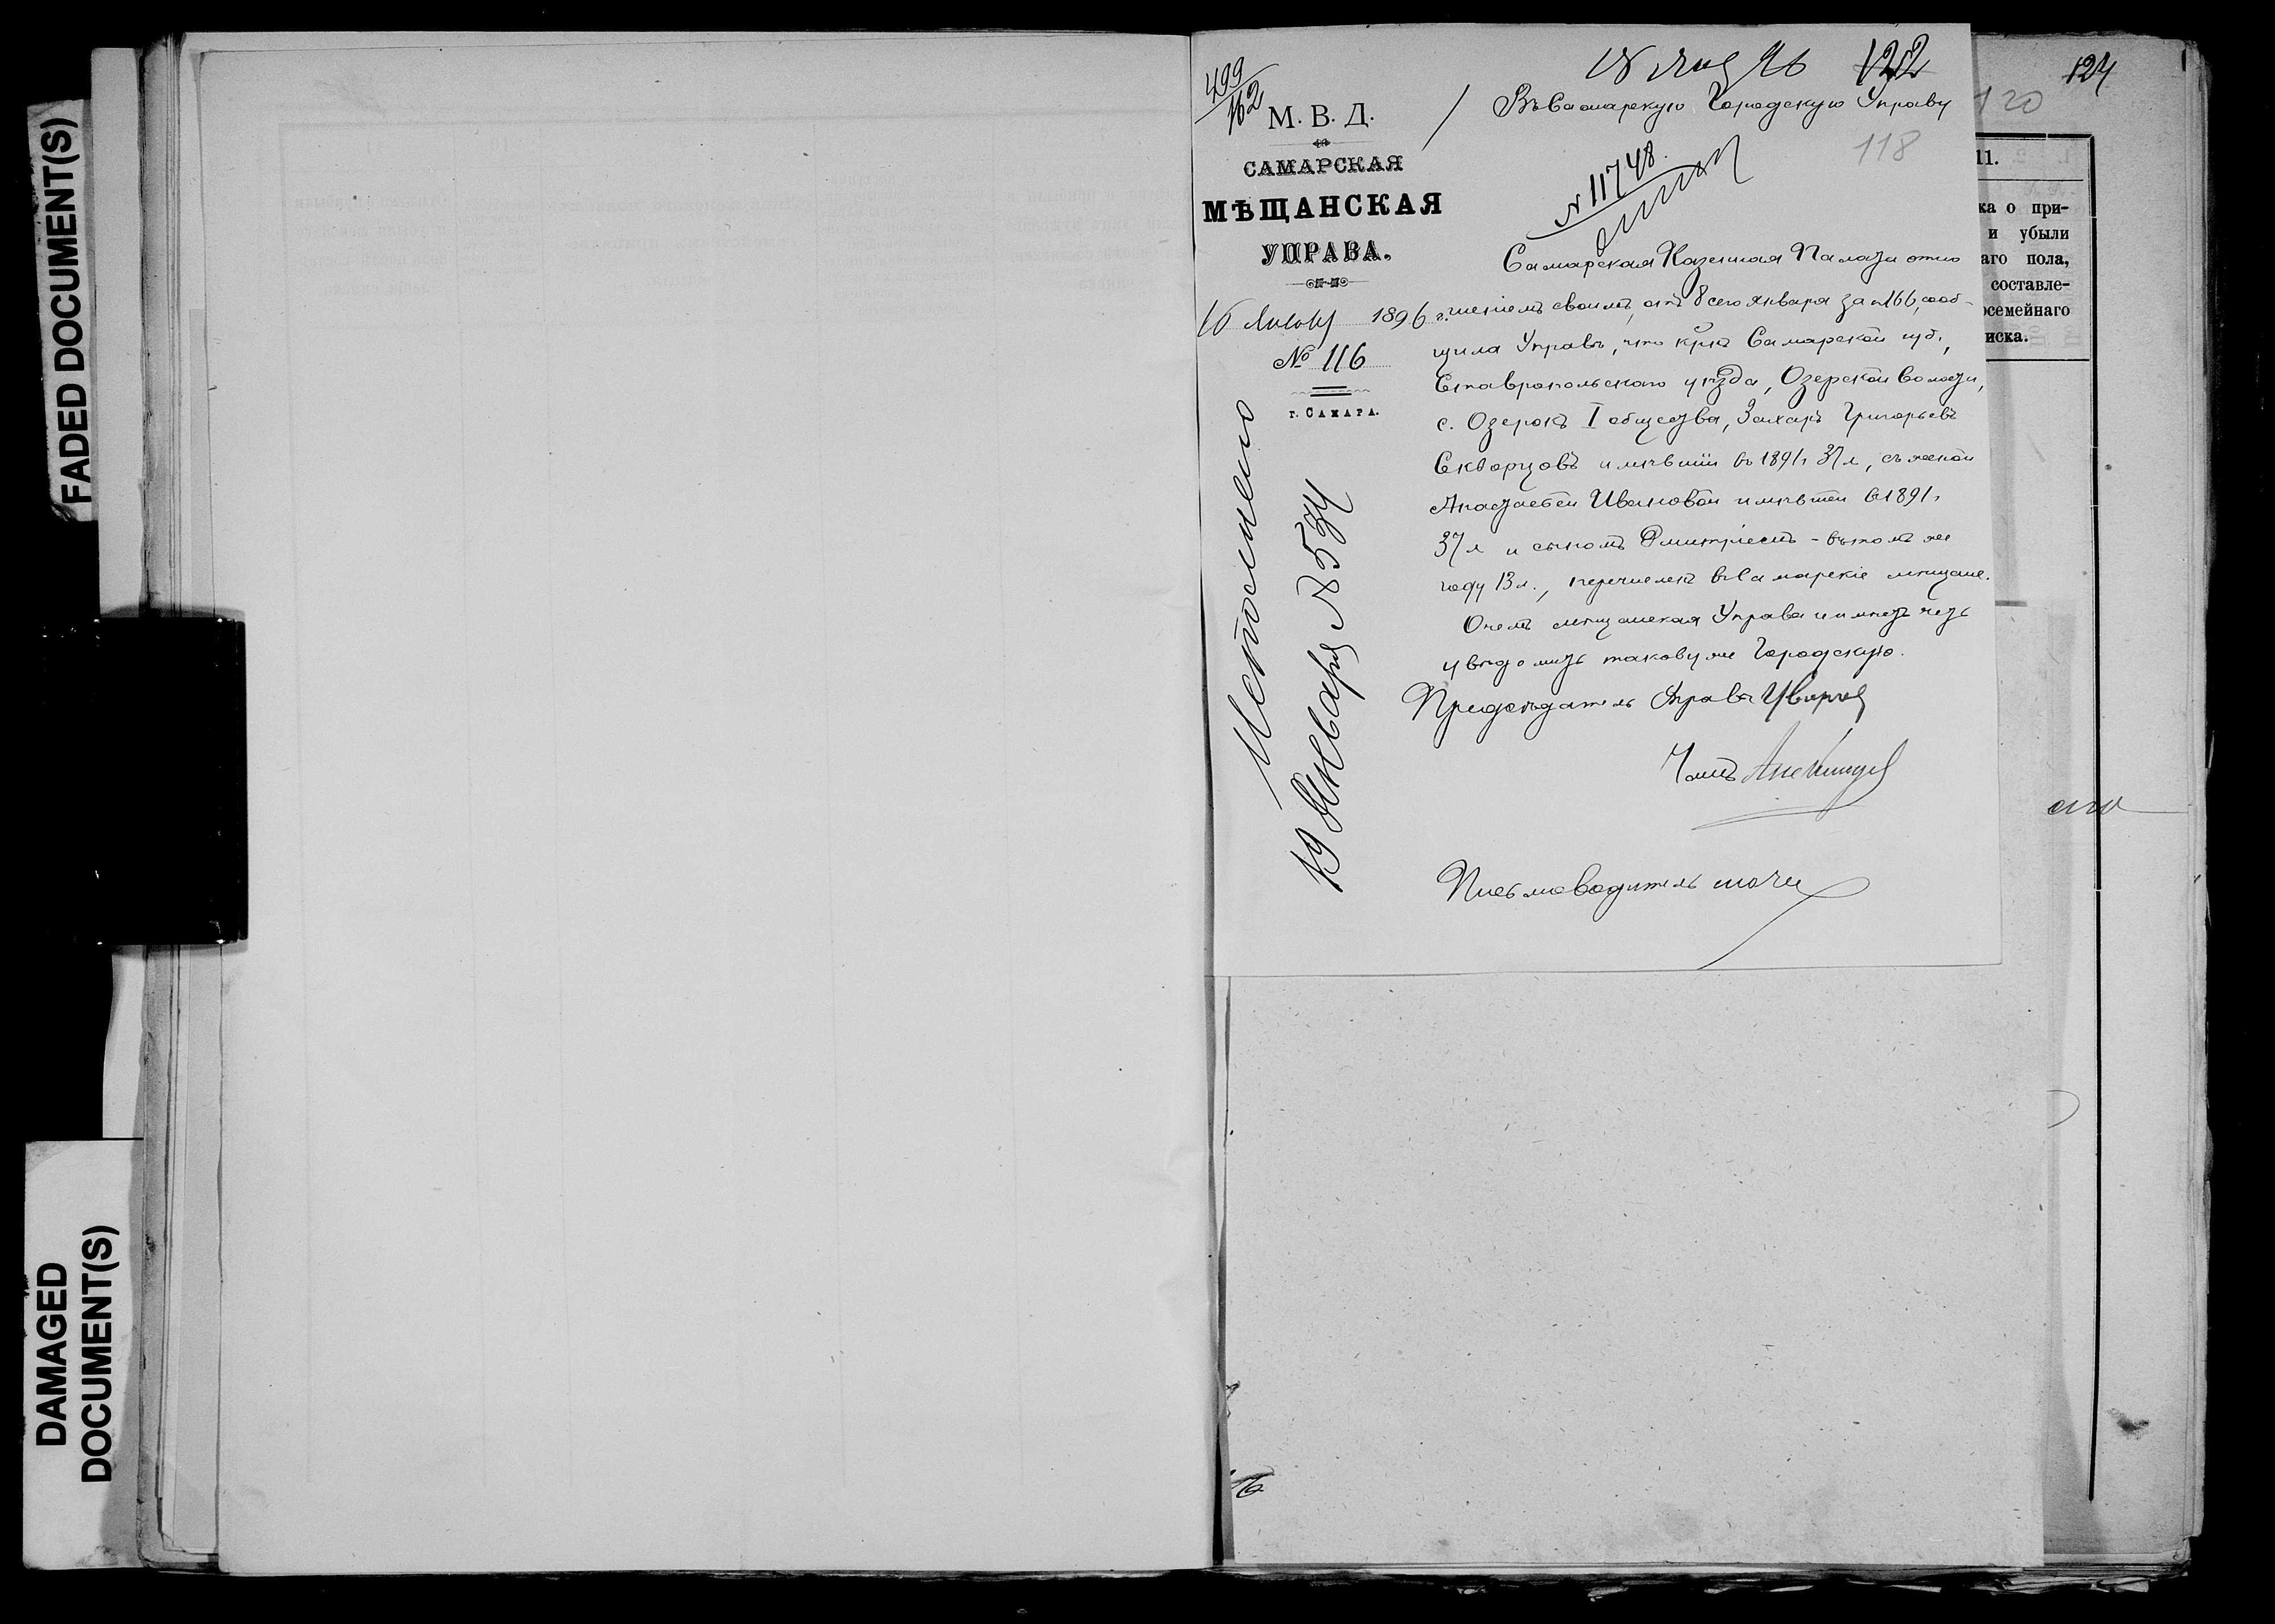 FADED DOCUMENT(S)
DAMAGED
DOCUMENT(S)
499
162
М. В. Д.
САМАРСКАЯ
МѢЩАНСКАЯ
УПРАВА.
16 Января 1896 г.
№ 116
г. САМАРА.
Исполнено
19 Января № 574
18 Янв 96
122
Въ Самарскую Городскую Управу
118
№ 11748.
Самарская Казенная Палата отно
шенiемъ своимъ, отъ 8 сего Января за № 166, сооб-
щила Управѣ, что кр-нъ Самарской губ.,
Ставропольскаго уѣзда, Озерской волости,
с. Озерокъ I общества, Захаръ Григорьевъ
Скворцовъ имѣвшiй въ 1891 г. 37 л., съ женой
Анастасiей Ивановой имѣвшей въ 1891 г.
37 л. и сыномъ Дмитрiемъ - въ томъ же
году 13 л., перечисленъ въ Самарскiе мѣщане.
О чемъ мѣщанская Управа и имѣетъ честь
увѣдомить таковую же Городскую.
Предсѣдатель Управы
Членъ
Письмоводитель
124
120
11.
ка о при-
и убыли
аго пола,
составле-
осемейнаго
иска.